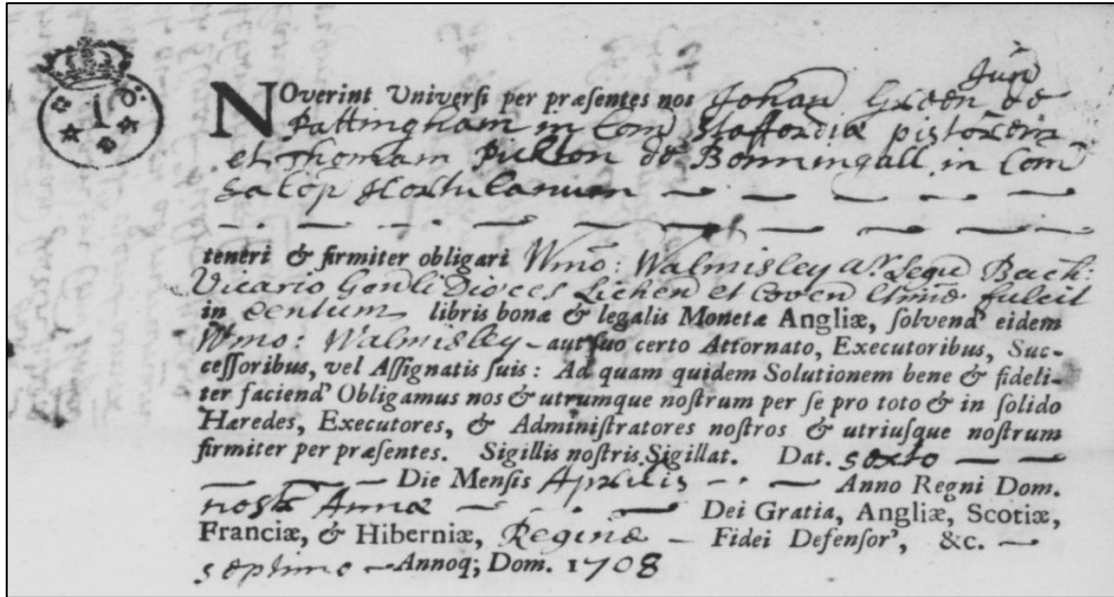 Jun̄
NOverint Universi per præsentes nos Johan̄ Green de
Pattingham in Com̄ Staffordiæ pistorem
et Thomam Pickton de Bonningall in Com̄
Salop̄ Hortulanum
teneri & firmiter obligari Wmō: Walmisley Ar Legū Bach:
Vicario Gen̄li Dioces Lichen̄ et Coven̄ ltim̄e fulcit
in Centum libris bonæ & legalis Monetæ Angliæ, solvend' eidem
Wmo: Walmisley – aut suo certo Attornato, Executoribus, Suc-
cessoribus, vel Assignatis suis: Ad quam quidem Solutionem bene & fideli-
ter faciend' Obligamus nos & utrumque nostrum per se pro toto & in solido
Hæredes, Executores, & Administratores nostros & utriusque nostrum
firmiter per præsentes. Sigillis nostris Sigillat. Dat. sexto — —
— — Die Mensis Aprilis — · — Anno Regni Dom.
nostræ Annæ — · — Dei Gratia, Angliæ, Scotiæ,
Franciæ, & Hiberniæ, Reginæ – Fidei Defensor', &c. —
septimo – Annoq; Dom. 1708